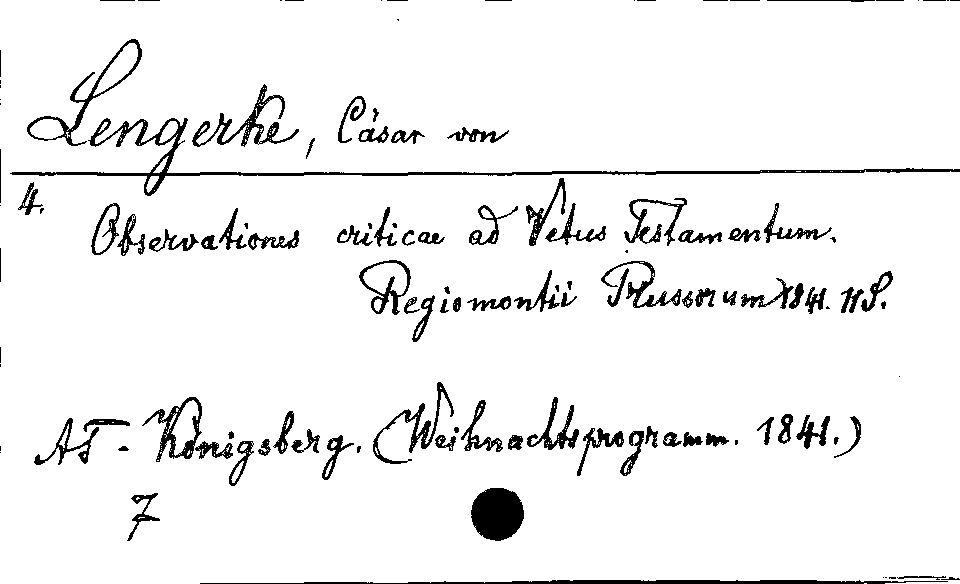 Lengerke, Cäsar von
4.
Observationes criticae ad Vetus Testamentum.
Regiomontii Prussorum 1841. 11 S.
AT - Königsberg. (Weihnachtsprogramm. 1841.)
7